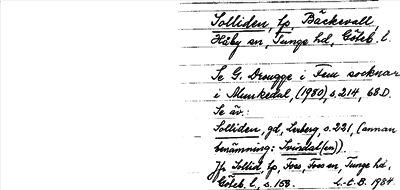 Solliden, lp, Bäckevall,
Håby sn, Tunge hd, Göteb. l.
Se G. Drougge i Fem socknar
i Munkedal, (1980), s. 214, 68D.
Se äv.:
Solliden, gd, Lerberg, s. 221, (annan
benämning: Svindal(en)).
Jfr Sollid, lp, Foss, Foss sn, Tunge hd,
Göteb. l., s. 158. L-t. B. 1984.